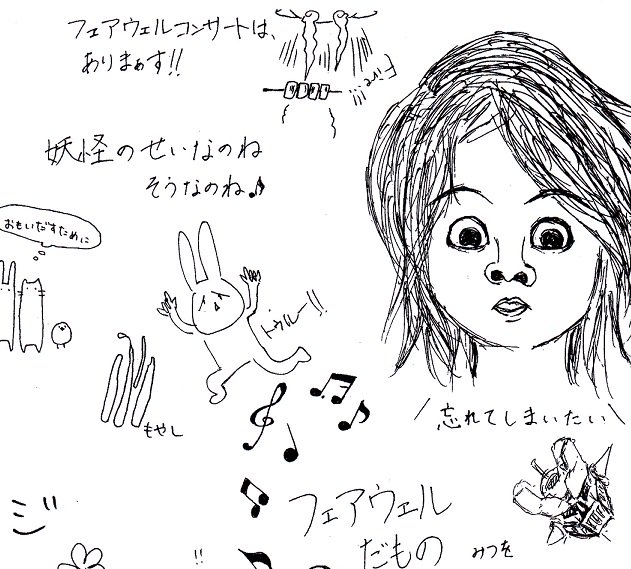 フェアウェルコンサートは、
ありまぁす!!
妖怪のせいなのね
そうなのね♪
おもいだすために
トゥルー!!
もやし
\忘れてしまいたい/
フェアウェル
だもの
みつを
!!